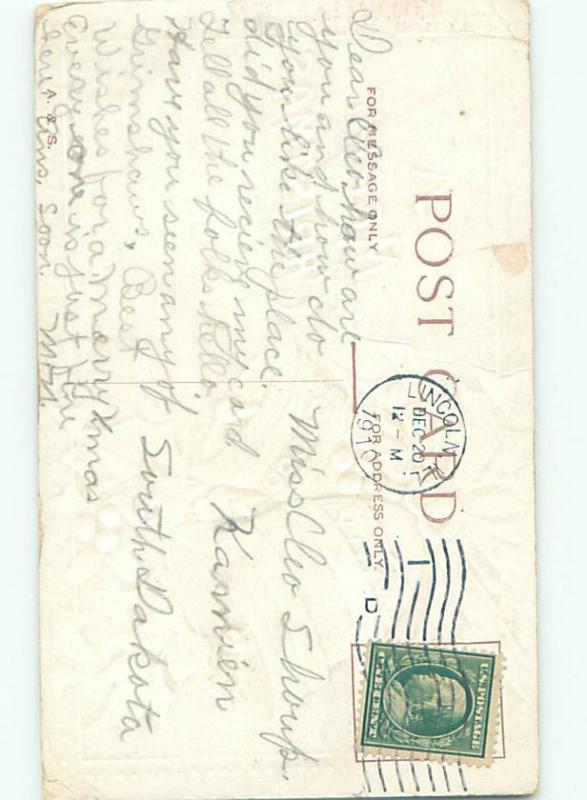 POST CARD
FOR MESSAGE ONLY
FOR ADDRESS ONLY.
LINCOLN
DEC 20
12 - M
1910
D
U.S. POSTAGE
ONE CENT
Dear Cleo, how are
you and how do
you like the place.
did you recieve my card
Tell all the folks hello.
Have you seen any of
Grimshaws. Best
Wishes for a Merry Xmas
Every one is just fine
Ans, Soon.
A. & S.
Miss Cleo Shoup.
South Dakota